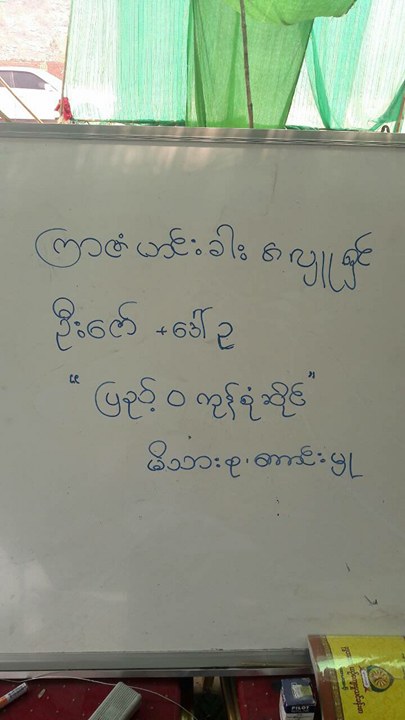 ကြာဇံ ဟင်းခါး အလှူရှင်
ဦးဇော် + ဒေါ်ဥ
"ပြည့်ဝ ကုန်စုံဆိုင်"
မိသားစု ကောင်းမှု
PILOT